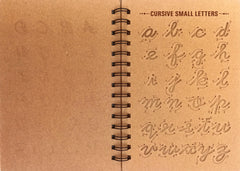 CURSIVE SMALL LETTERS
a b c d
e f g h
i j k l
m n o p
q r s t u
v w x y z